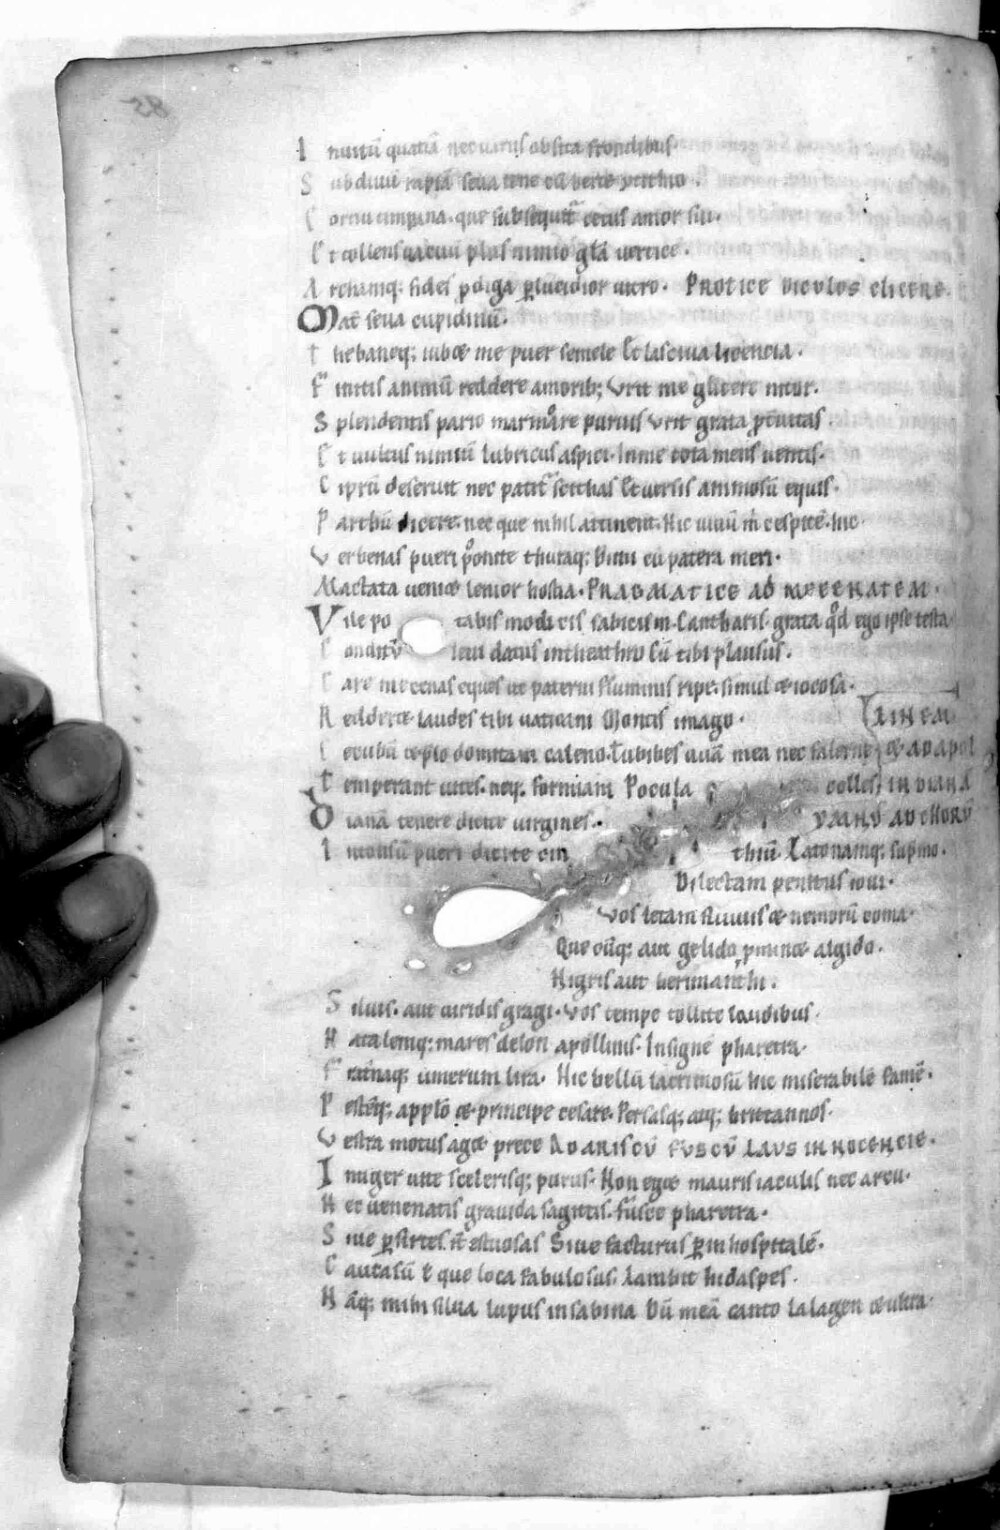 I nuitū quatiā nec uariis obsita frondibus.
S ub diuū rapiā seua tene cū berecynthio.
C ornu timpana. que subsequit᷑ cecus amor sui.
E t tollens uacuū plus nimio glā uertice.
A rchaniq; fides ꝓdiga ꝑlucidior uitro. PROTICE DICVLVS ELICERE.
Mat̄ seua cupidinū.
T hebaneq; iubæ me puer semele Et lasciua licencia.
F initis animū reddere amorib; Vrit me glicere nitor.
S plendentis pario marmore purius Vrit grata ꝓteruitas.
E t uultus nimiū lubricus aspici. In me tota mens uenus.
C iprū deseruit nec patit᷑ scithas Et uersis animosū equis.
P arthū dicere. nec que nihil attinent. Hic uiuū m̄ cespitē. hic
V erbenas pueri ponite thuraq; Bimi cū patera meri.
Mactata ueniæ lenior hostia. PRAGMATICE AD MECENATEM.
V ile po tabis modicis sabinū. Cantharis. grata qd ego ipse testa
C onditū leui datus in theathro Cū tibi plausus.
C are mecenas eques ut paterni Fluminis ripe. simul æ iocosa.
R edderæ laudes tibi uaticani Montis imago.
C ecubū æ prelo domitam caleno. Tu bibes uuā mea nec falerne
T emperant uites. neq. formiani Pocula colles
D ianā tenere dicite virgines. YMNŪ AD CHORŪ
I ntonsū pueri dicite cin thiū. Latonamq; supmo.
Dilectam penitus ioui.
Vos letam fluuiis æ nemorū coma.
Que cūq; aut gelido pminæ algido.
Nigris aut herimanthi.
S iluis. aut uiridis gragi. Vos tempe tollite laudibus.
N atalemq; mares delon apollinis. Insigne pharetra.
F rat̄naq; umerum lira. Hic bellū lacrimosū hic miserabilē famē.
P estēq; a pplo æ principe cesare. Persasq; atq; britannos.
V estra motus agæ prece AD ARISCŪ FVSCŪ LAVS INNOCENCIE.
I nteger uite scelerisq; purus. Non egæ mauris iaculis nec arcu.
N ec uenenatis grauida sagittis. fusce pharetra.
S iue ꝑ sirtes it̄ estuosas Siue facturus ꝑ inhospitalē.
C aucasū t que loca fabulosus. Lambit hidaspes.
N āq; me in silua lupus in sabina Dū meā canto lalagen æ ultra.